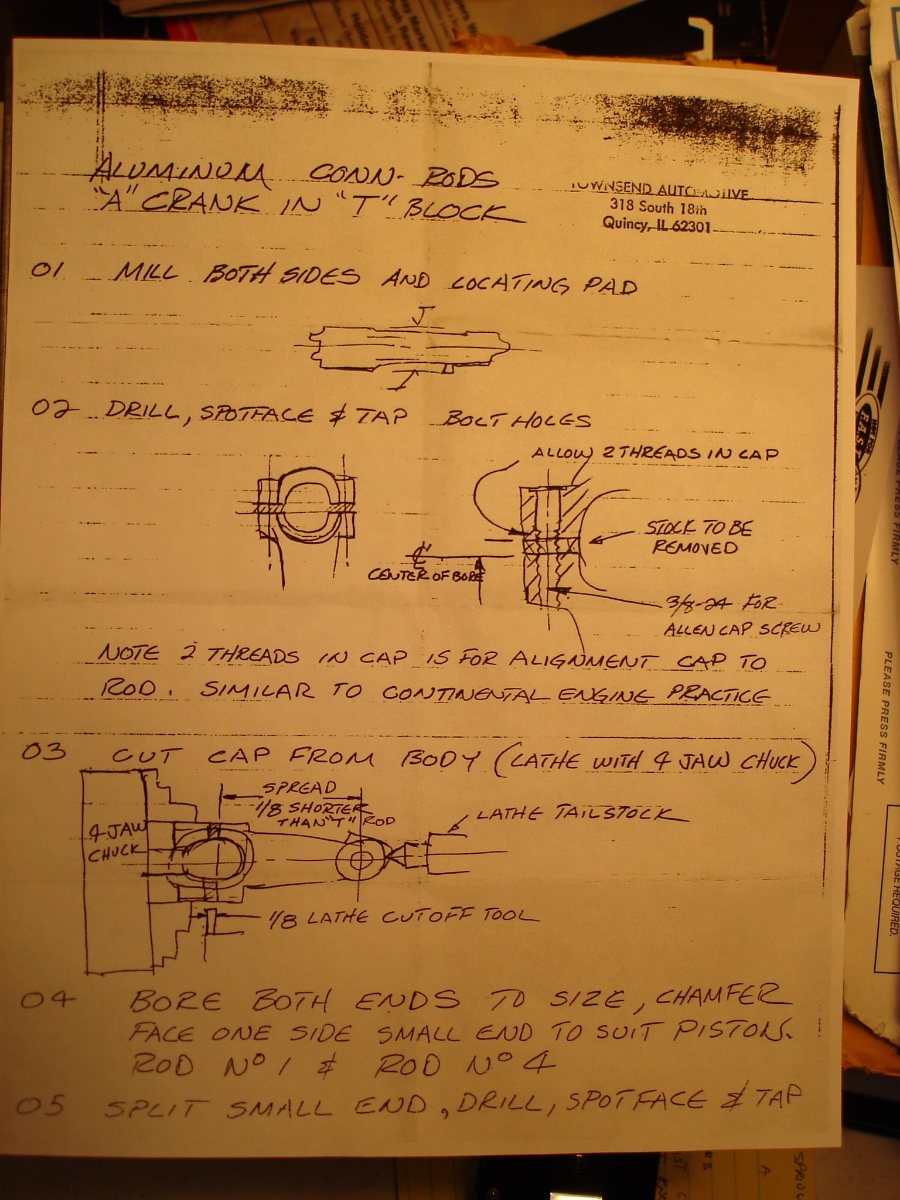 ALUMINUM CONN-RODS
"A" CRANK IN "T" BLOCK
TOWNSEND AUTOMOTIVE
318 South 18th
Quincy, IL 62301
01 MILL BOTH SIDES AND LOCATING PAD
02 DRILL, SPOTFACE & TAP BOLT HOLES
ALLOW 2 THREADS IN CAP
STOCK TO BE
REMOVED
CENTER OF BORE
3/8-24 FOR
ALLEN CAP SCREW
NOTE 2 THREADS IN CAP IS FOR ALIGNMENT CAP TO
ROD. SIMILAR TO CONTINENTAL ENGINE PRACTICE
03 CUT CAP FROM BODY (LATHE WITH 4 JAW CHUCK)
SPREAD
1/8 SHORTER
THAN "T" ROD
LATHE TAILSTOCK
4 JAW
CHUCK
1/8 LATHE CUTOFF TOOL
04 BORE BOTH ENDS TO SIZE, CHAMFER
FACE ONE SIDE SMALL END TO SUIT PISTON.
ROD Nº 1 & ROD Nº 4
05 SPLIT SMALL END, DRILL, SPOTFACE & TAP
PLEASE PRESS FIRMLY